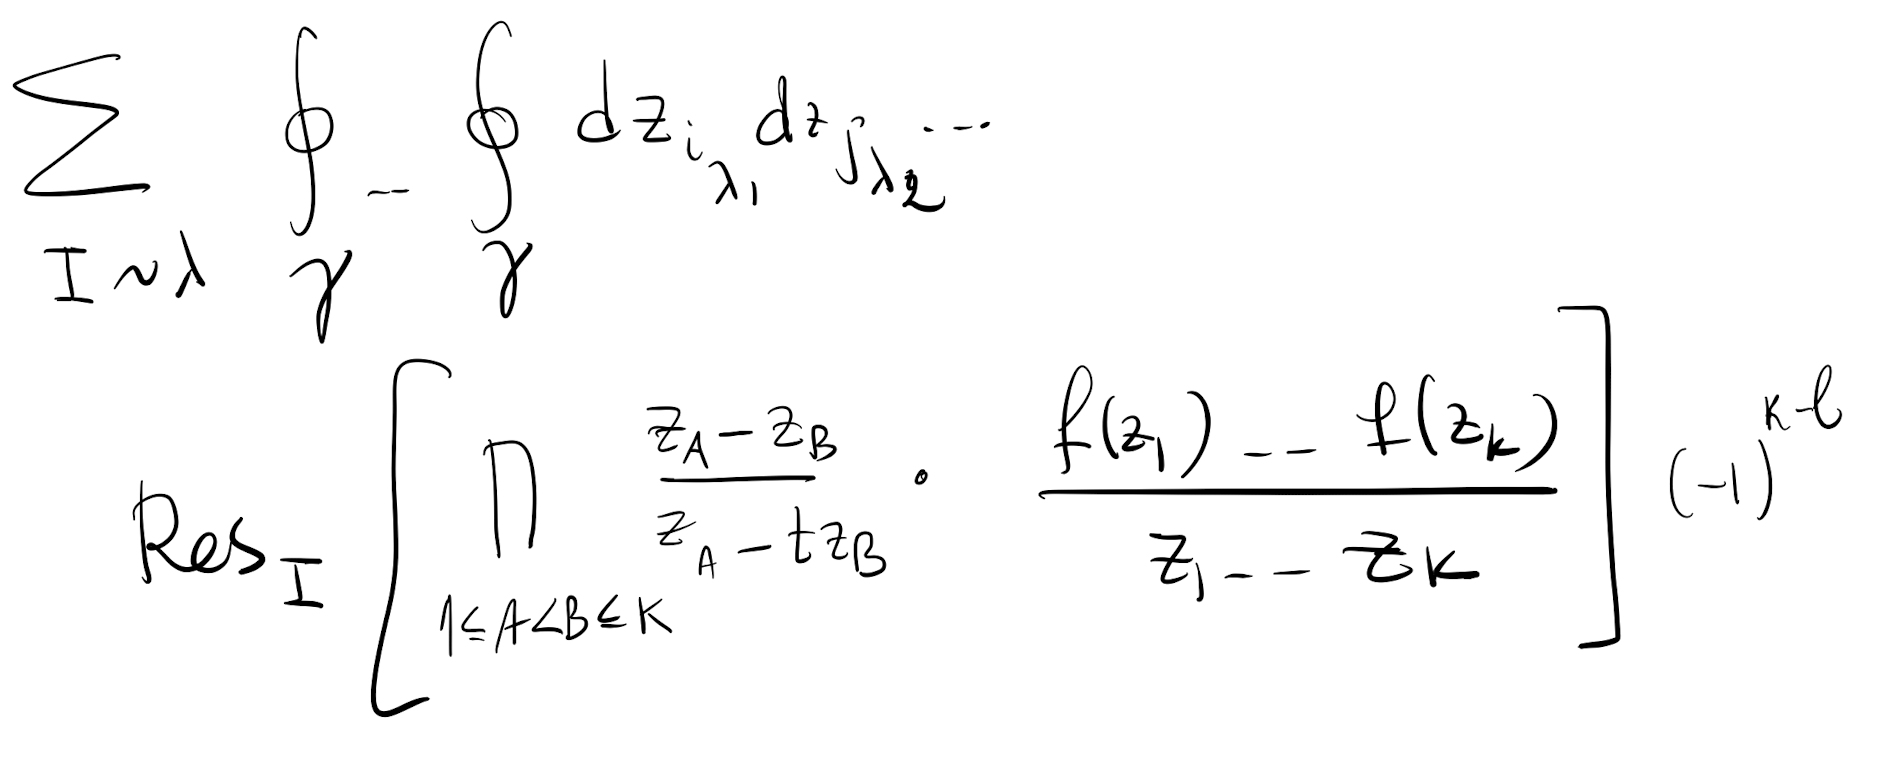 $\sum_{I \sim \lambda} \oint_{\gamma} \text{--} \oint_{\gamma} dz_{i_{\lambda_1}} dz_{j_{\lambda_2}} \cdots$
$\text{Res}_I \left[ \prod_{1 \le A < B \le K} \frac{z_A - z_B}{z_A - t z_B} \cdot \frac{f(z_1) \text{---} f(z_k)}{z_1 \text{---} z_k} \right] (-1)^{K-\ell}$